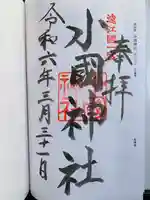 奉拝
遠江國一宮
小國神社
令和六年三月三十一日